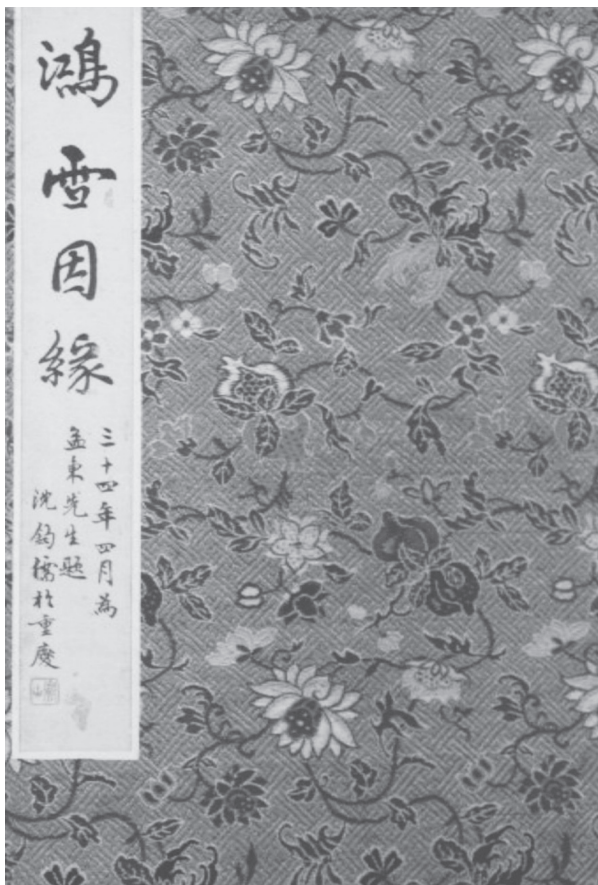 鴻雪因緣
三十四年四月為
孟東先生題
沈鈞儒於重慶